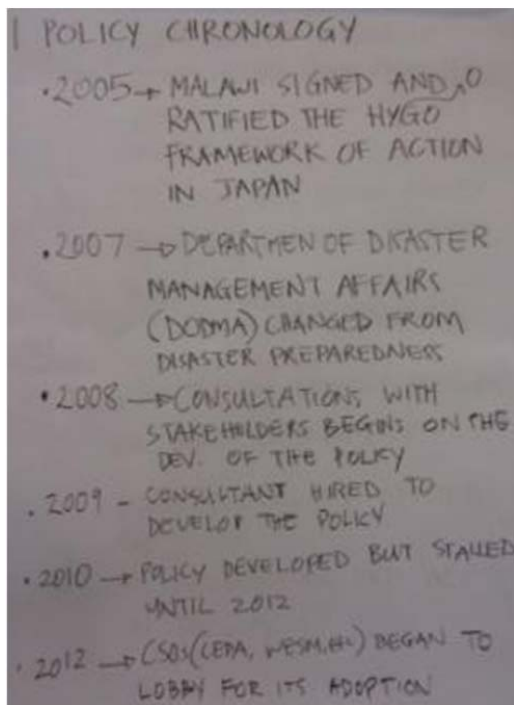 1 POLICY CHRONOLOGY
• 2005 → MALAWI SIGNED AND
RATIFIED THE HYGO
FRAMEWORK OF ACTION
IN JAPAN
• 2007 → DEPARTMEN OF DISASTER
MANAGEMENT AFFAIRS
(DODMA) CHANGED FROM
DISASTER PREPAREDNESS
• 2008 → CONSULTATIONS WITH
STAKEHOLDERS BEGINS ON THE
DEV. OF THE POLICY
• 2009 - CONSULTANT HIRED TO
DEVELOP THE POLICY
• 2010 → POLICY DEVELOPED BUT STALLED
UNTIL 2012
• 2012 → CSOs (CEPA, WESM, etc) BEGAN TO
LOBBY FOR ITS ADOPTION